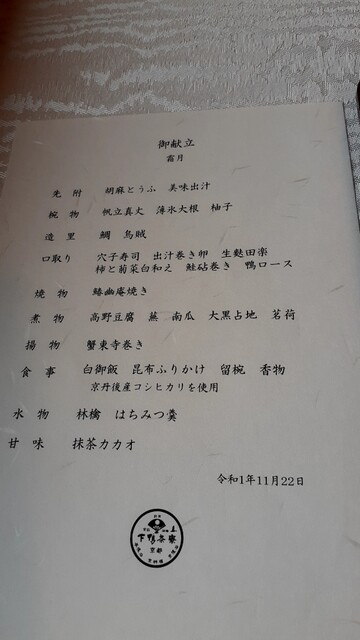 御献立
霜月
先附 胡麻とうふ 美味出汁
椀物 帆立真丈 薄氷大根 柚子
造里 鯛 烏賊
口取り 穴子寿司 出汁巻き卵 生麩田楽
柿と菊菜白和え 鮭砧巻き 鴨ロース
焼物 鰆幽庵焼き
煮物 高野豆腐 蕪 南瓜 大黒占地 茗荷
揚物 蟹東寺巻き
食事 白御飯 昆布ふりかけ 留椀 香物
京丹後産コシヒカリを使用
水物 林檎 はちみつ羹
甘味 抹茶カカオ
令和1年11月22日
下鴨茶寮
京都